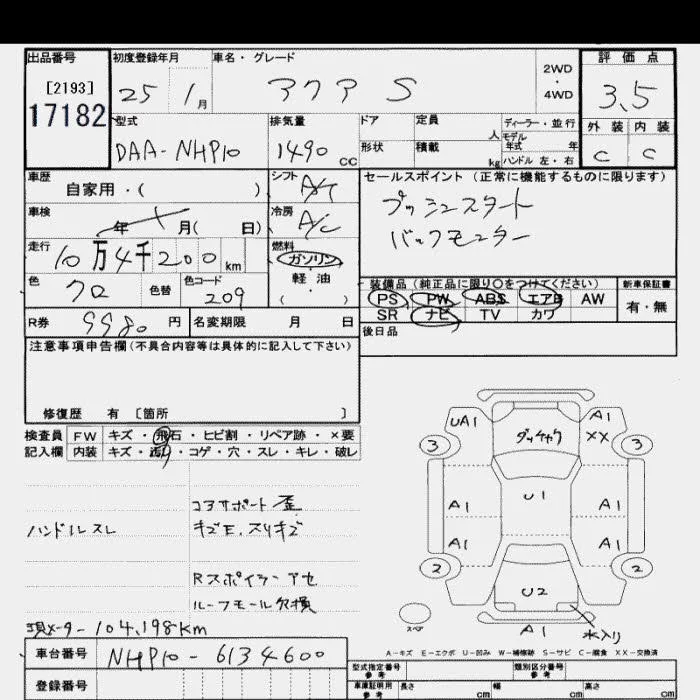 出品番号 初度登録年月 車名・グレード 2WD・4WD 評価点
[2193]
17182
25 1月 アクア S 3.5
型式 排気量 ドア 定員 人 ディーラー・並行 外装 内装
モデル年式 年
DAA-NHP10 1490cc 形状 積載 kg ハンドル 左・右 C C
車歴 自家用・( ) シフト A/T セールスポイント(正常に機能するものに限ります)
プッシュスタート
車検 年 月( 日) 冷房 A/C
バックモニター
走行 10万4千200km 燃料 ガソリン・軽油・( )
色 クロ 色替 色コード 209
装備品(純正品に限り○をつけてください) 新車保証書
PS PW ABS エアB AW 有・無
SR ナビ TV カワ
R券 9980円 名変期限 月 日 後日品
注意事項申告欄(不具合内容等は具体的に記入して下さい)
修復歴 有 [箇所 ]
検査員 FW キズ・飛石・ヒビ割・リペア跡・×要
記入欄 内装 キズ・汚れ・コゲ・穴・スレ・キレ・破レ
コアサポート歪
ハンドルスレ キズE、スリキズ
Rスポイラーアセ
ルーフモール欠損
現メーター104,198km
UA1 A1
XX
3 3
A1 U1 A1
A1 A1
2 2
U2
スペア A1 水入り
A-キズ E-エクボ U-凹み W-補修跡 S-サビ C-腐食 XX-交換済
車台番号 NHP10-6134600
登録番号
型式指定番号 参考 類別区分番号 参考
車庫証明用 参考 長さ cm 幅 cm 高さ cm